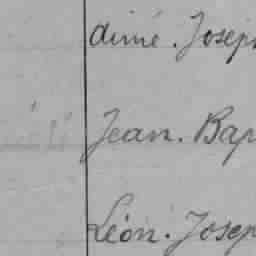 dimé. Joseph
Jean. Bap
Léon. Josep